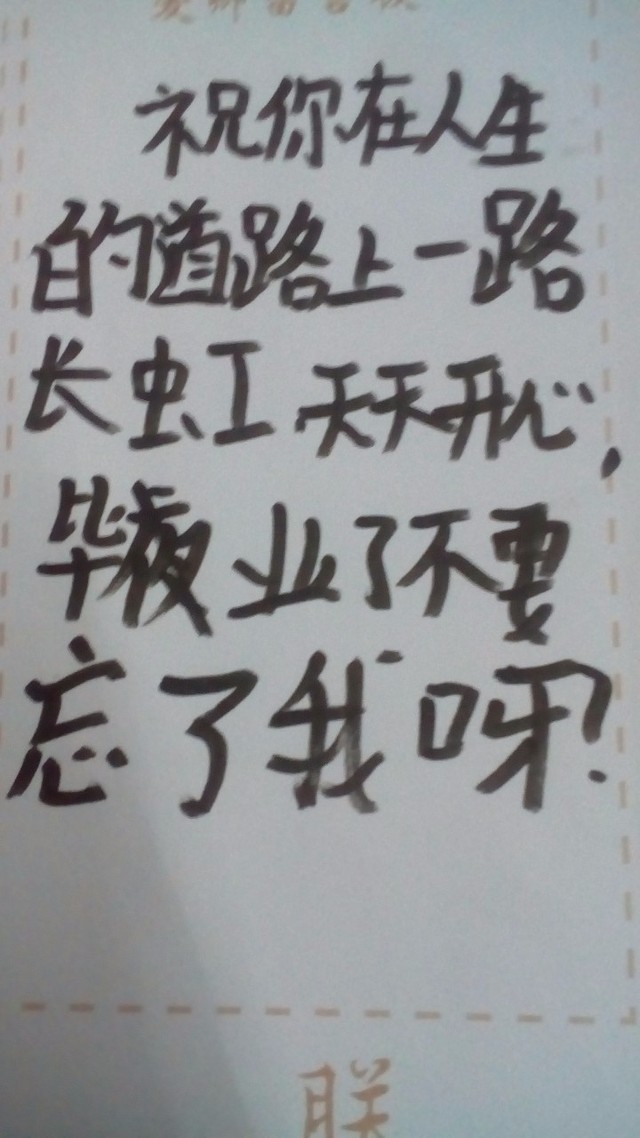 祝你在人生
的道路上一路
长虹天天开心,
毕业了不要
忘了我呀?
联